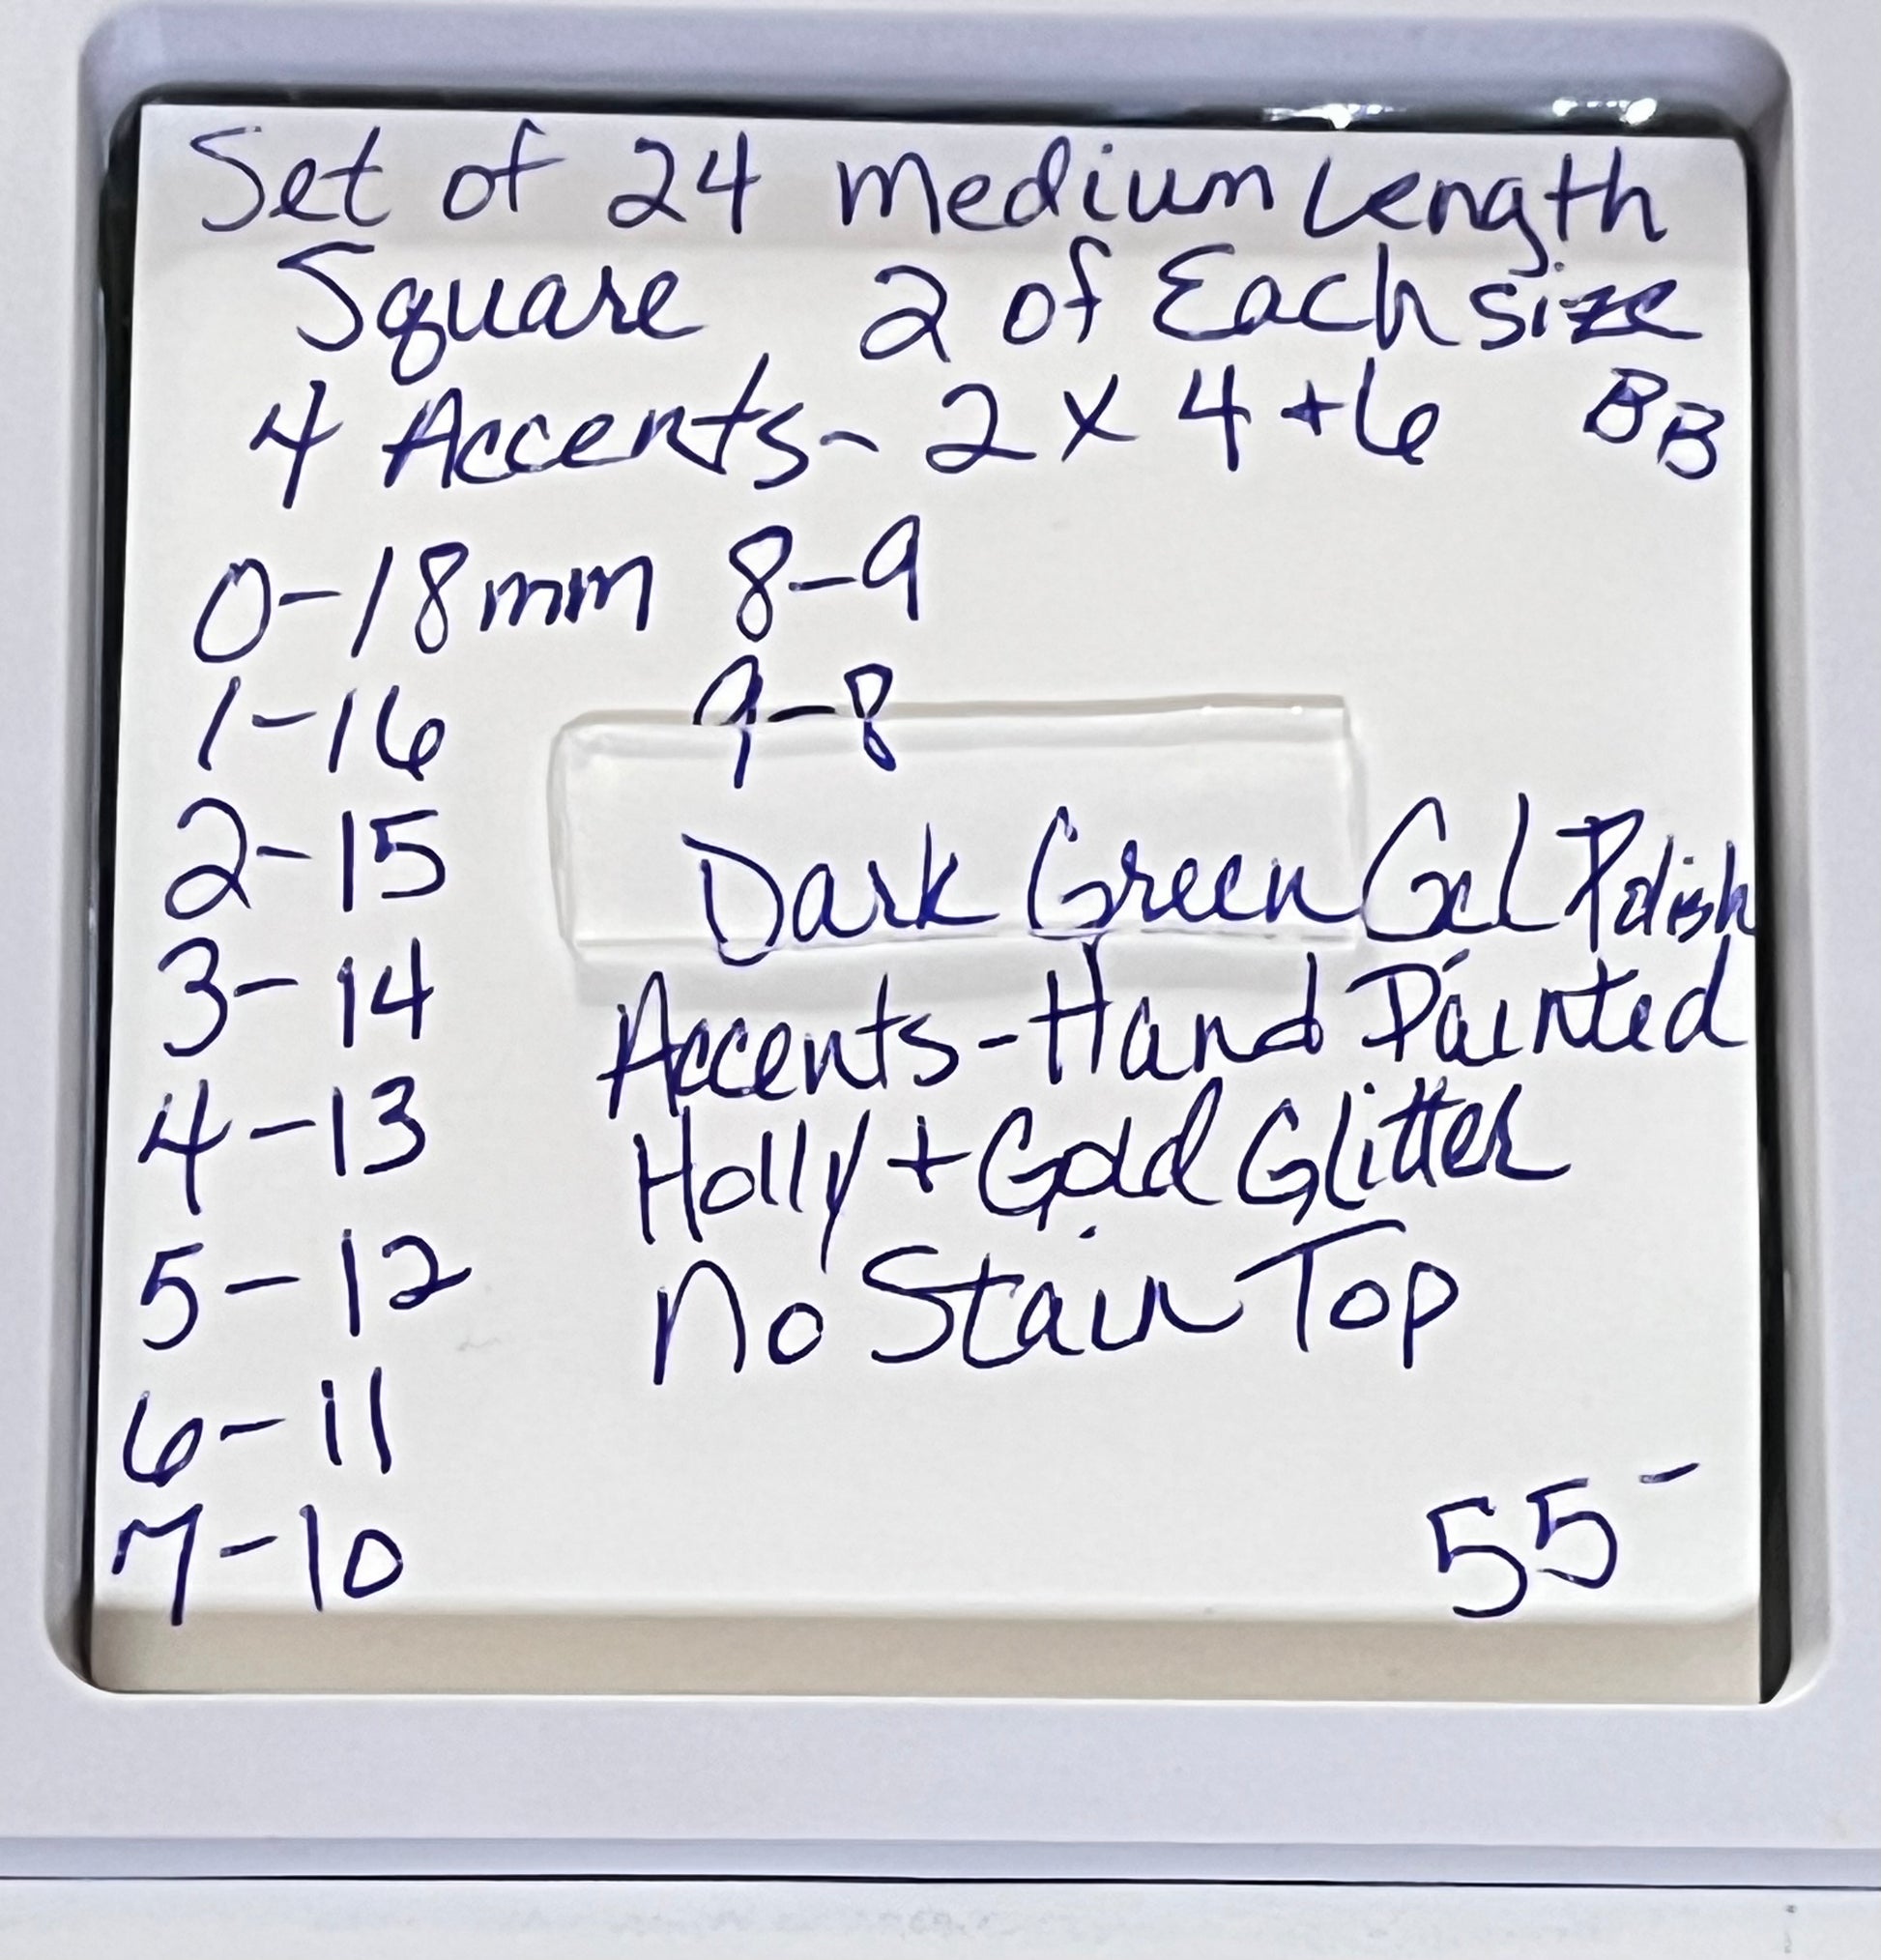 Set of 24 Medium Length
Square 2 of Each size
4 Accents - 2 x 4 + 6 BB
0-18mm 8-9
1-16 9-8
2-15 Dark Green Gel Polish
3-14 Accents-Hand Painted
4-13 Holly + Gold Glitter
5-12 No Stain Top
6-11
7-10 55-